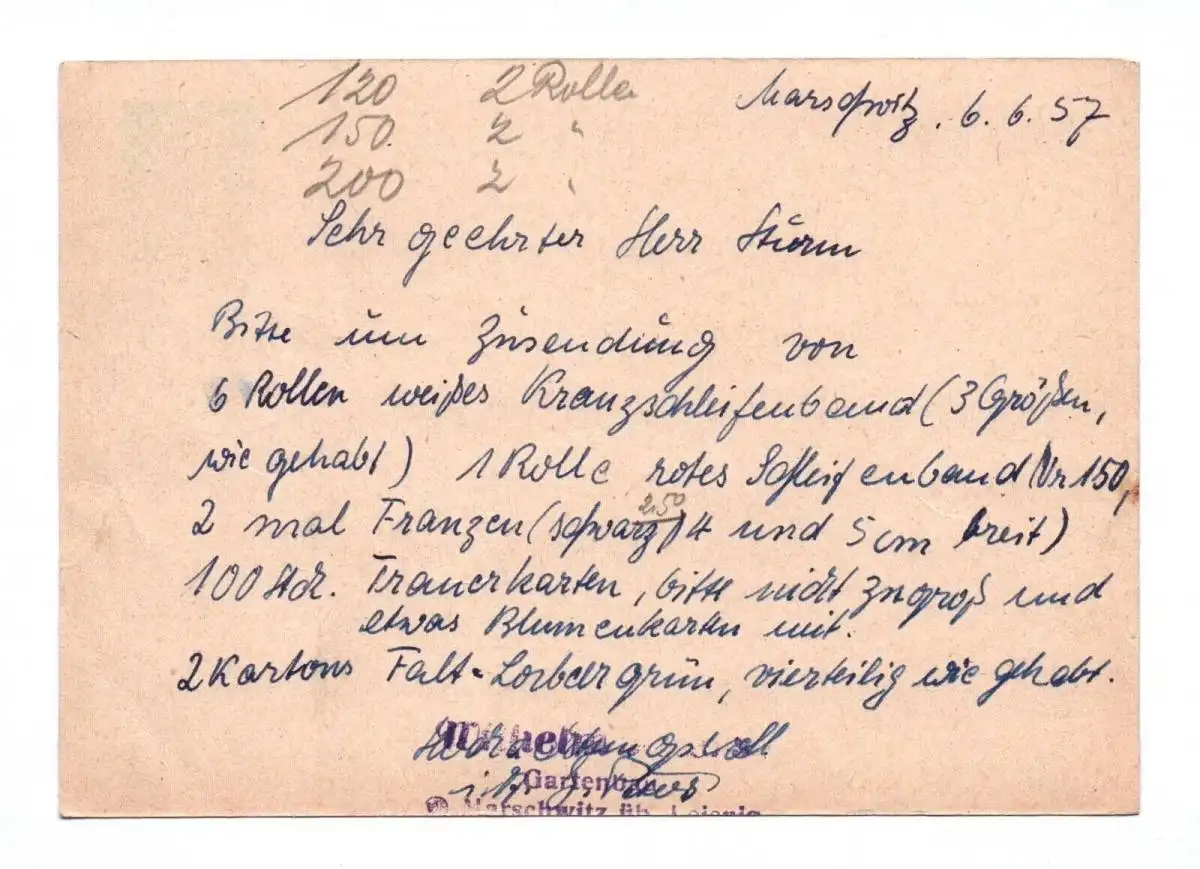 120 2 Rollen
150. 2 "
200 2 "
Marschwitz, 6. 6. 57
Sehr geehrter Herr Sturm
Bitte um Zusendung von
6 Rollen weißes Kranzschleifenband (3 Größen,
wie gehabt) 1 Rolle rotes Schleifenband Nr 150,
2 mal Franzen (schwarz) 4 und 5 cm breit)
2,50
100 Stck. Trauerkarten, bitte nicht zu groß und
etwas Blumenkarten mit.
2 Kartons Falt-Lorbeergrün, vierteilig wie gehabt.
Wilhelm
Gartenbau
Marschwitz üb. Leisnig